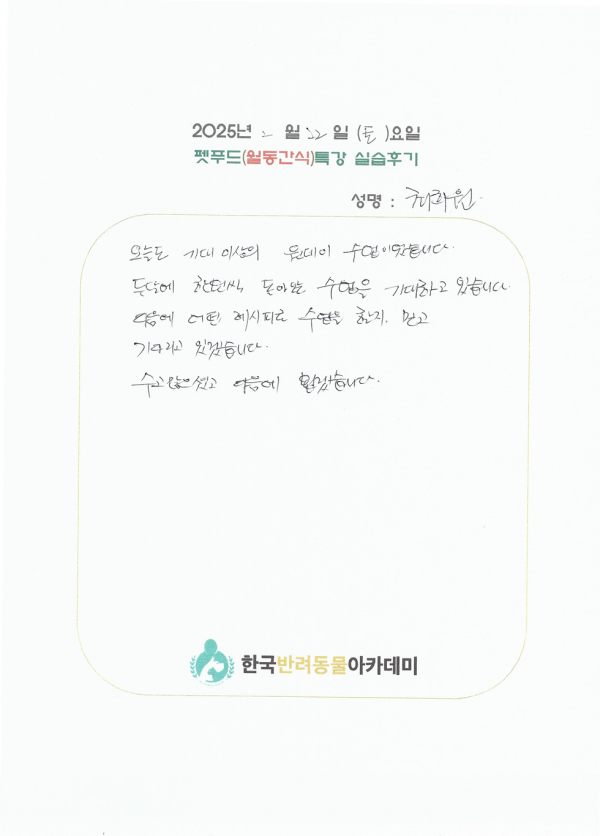 2025년 2 월 22 일 (토)요일
펫푸드(월동간식)특강 실습후기
성명 : 최화원
오늘도 기대 이상의 원데이 수업이었습니다.
두달에 한번씩 돌아오는 수업을 기대하고 있습니다.
다음에 어떤 레시피로 수업을 할지. 믿고
기다리고 있겠습니다.
수고 많으셨고 다음에 뵙겠습니다.
한국반려동물아카데미